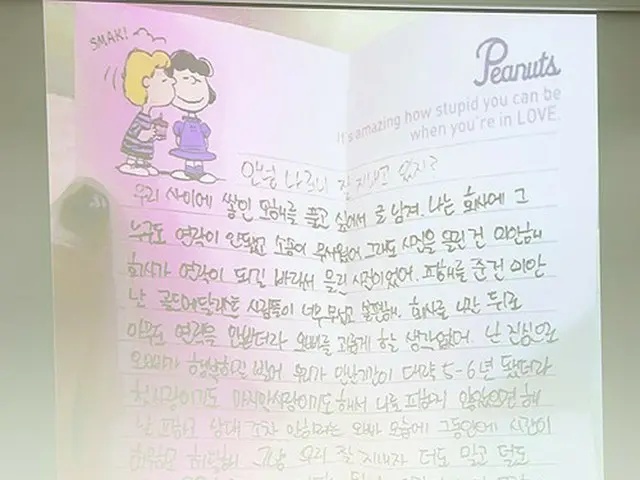 SMAK!
Peanuts
It's amazing how stupid you can be
when you're in LOVE.
안녕 나 잘 지내고 있지?
우리 사이에 쌓인 오해를 풀고 싶어서 글 남겨. 나는 회사에 그
누구도 연락이 안됐고 소송이 무서웠어 그래도 사진을 올린 건 미안해
회사가 연락이 되길 바라서 올린 사진이었어. 피해를 준건 미안
난 골드메달리스트 사람들이 너무 무섭고 불편해. 회사를 나간 뒤로
아무도 연락을 안받더라 오빠를 괴롭게 할 생각없어. 난 진심으로
오빠가 행복하길 빌어 우리가 만난기간이 대략 5-6년 됐더라
첫사랑이기도 마지막사랑이기도 해서 나를 피하지 않았으면 해
난 상대조차 안하려는 오빠 모습에 그동안에 시간이
허무하고 허탈해. 그냥 우리 잘 지내자 더도 말고 덜도